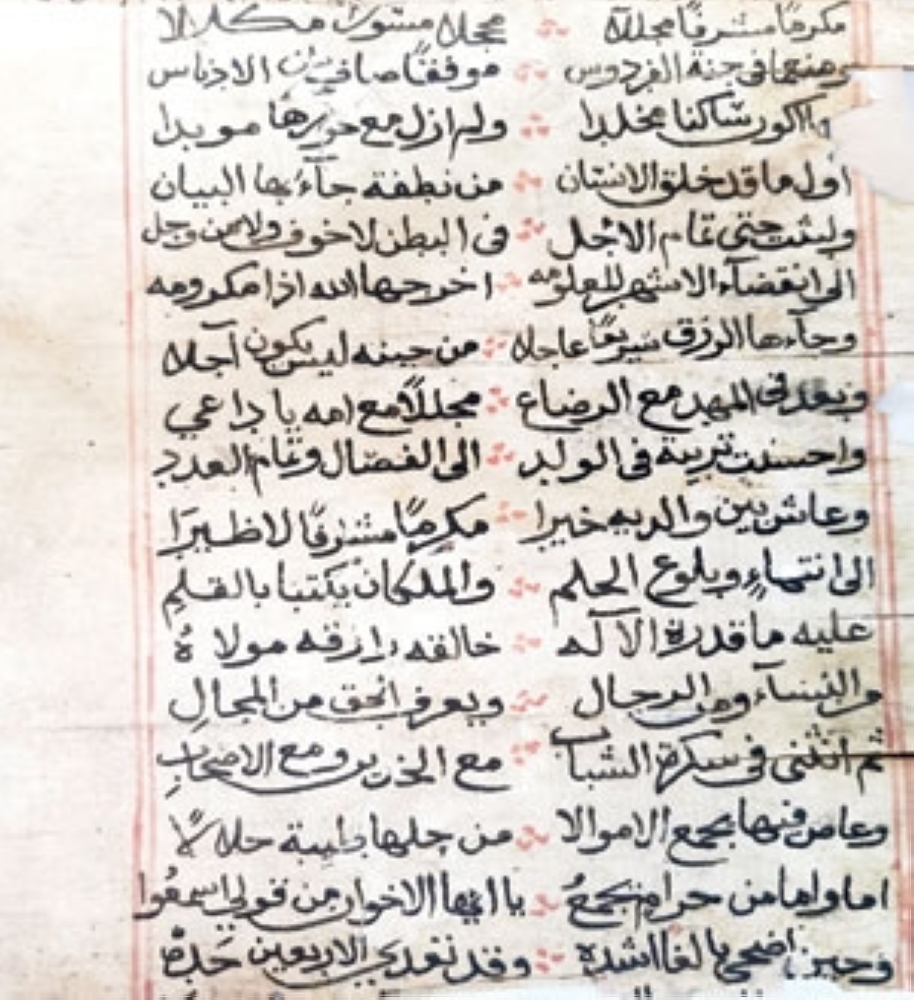 مكرمًا مشرفًا مجللا ∴ مجملا مسورا مكللا
ومنعما في جنة الفردوس ∴ موفقًا صافي من الادناس
واكون ساكنا مخلدا ∴ ولم ازل مع حورها مويدا
اول ما قد خلق الانسان ∴ من نطفة جآءبها البيان
ولبثت حتى تمام الاجل ∴ في البطن لا خوف ولا من وجل
الى انقضآء الاشهر المعلومه ∴ اخرجها الله اذا مكرومه
وجآءها الرزق سريعًا عاجلا ∴ من حينه ليس يكون آجلا
وبعد في المهد مع الرضاع ∴ مجللًا مع امه يا داعي
واحسنت تربية في الولد ∴ الى الفصال وتمام العدد
وعاش بين والديه خيرا ∴ مكرمًا مشرفًا لا ظيرا
الى انتهاءٍ وبلوغ الحلم ∴ والملكان يكتبا بالقلم
عليه ما قدرة الآله ∴ خالقه رازقه مولاهُ
والنسآء ومن الرجال ∴ ويعرف الحق من المحالِ
ثم انثنى في سكرة الشباب ∴ مع الخدين ومع الاصحابِ
وعاص فيها بجمع الاموالا ∴ من حلها طيبة حلالًا
اما واما من حرام يجمعُ ∴ يا ايها الاخوان من قولي اسمعُوا
وحين اضحى بالغا اشده ∴ وقد تعدى الاربعين حَدهُ